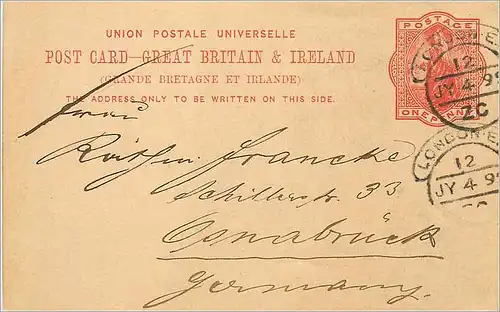 UNION POSTALE UNIVERSELLE
POST CARD—GREAT BRITAIN & IRELAND
(GRANDE BRETAGNE ET IRLANDE)
THE ADDRESS ONLY TO BE WRITTEN ON THIS SIDE.
POSTAGE
ONE PENNY
LONDON·E
12
JY 4 9
2C
LONDON·E
12
JY 4 9
Frau
Francke
Schillerstr. 33
Osnabrück
Germany.